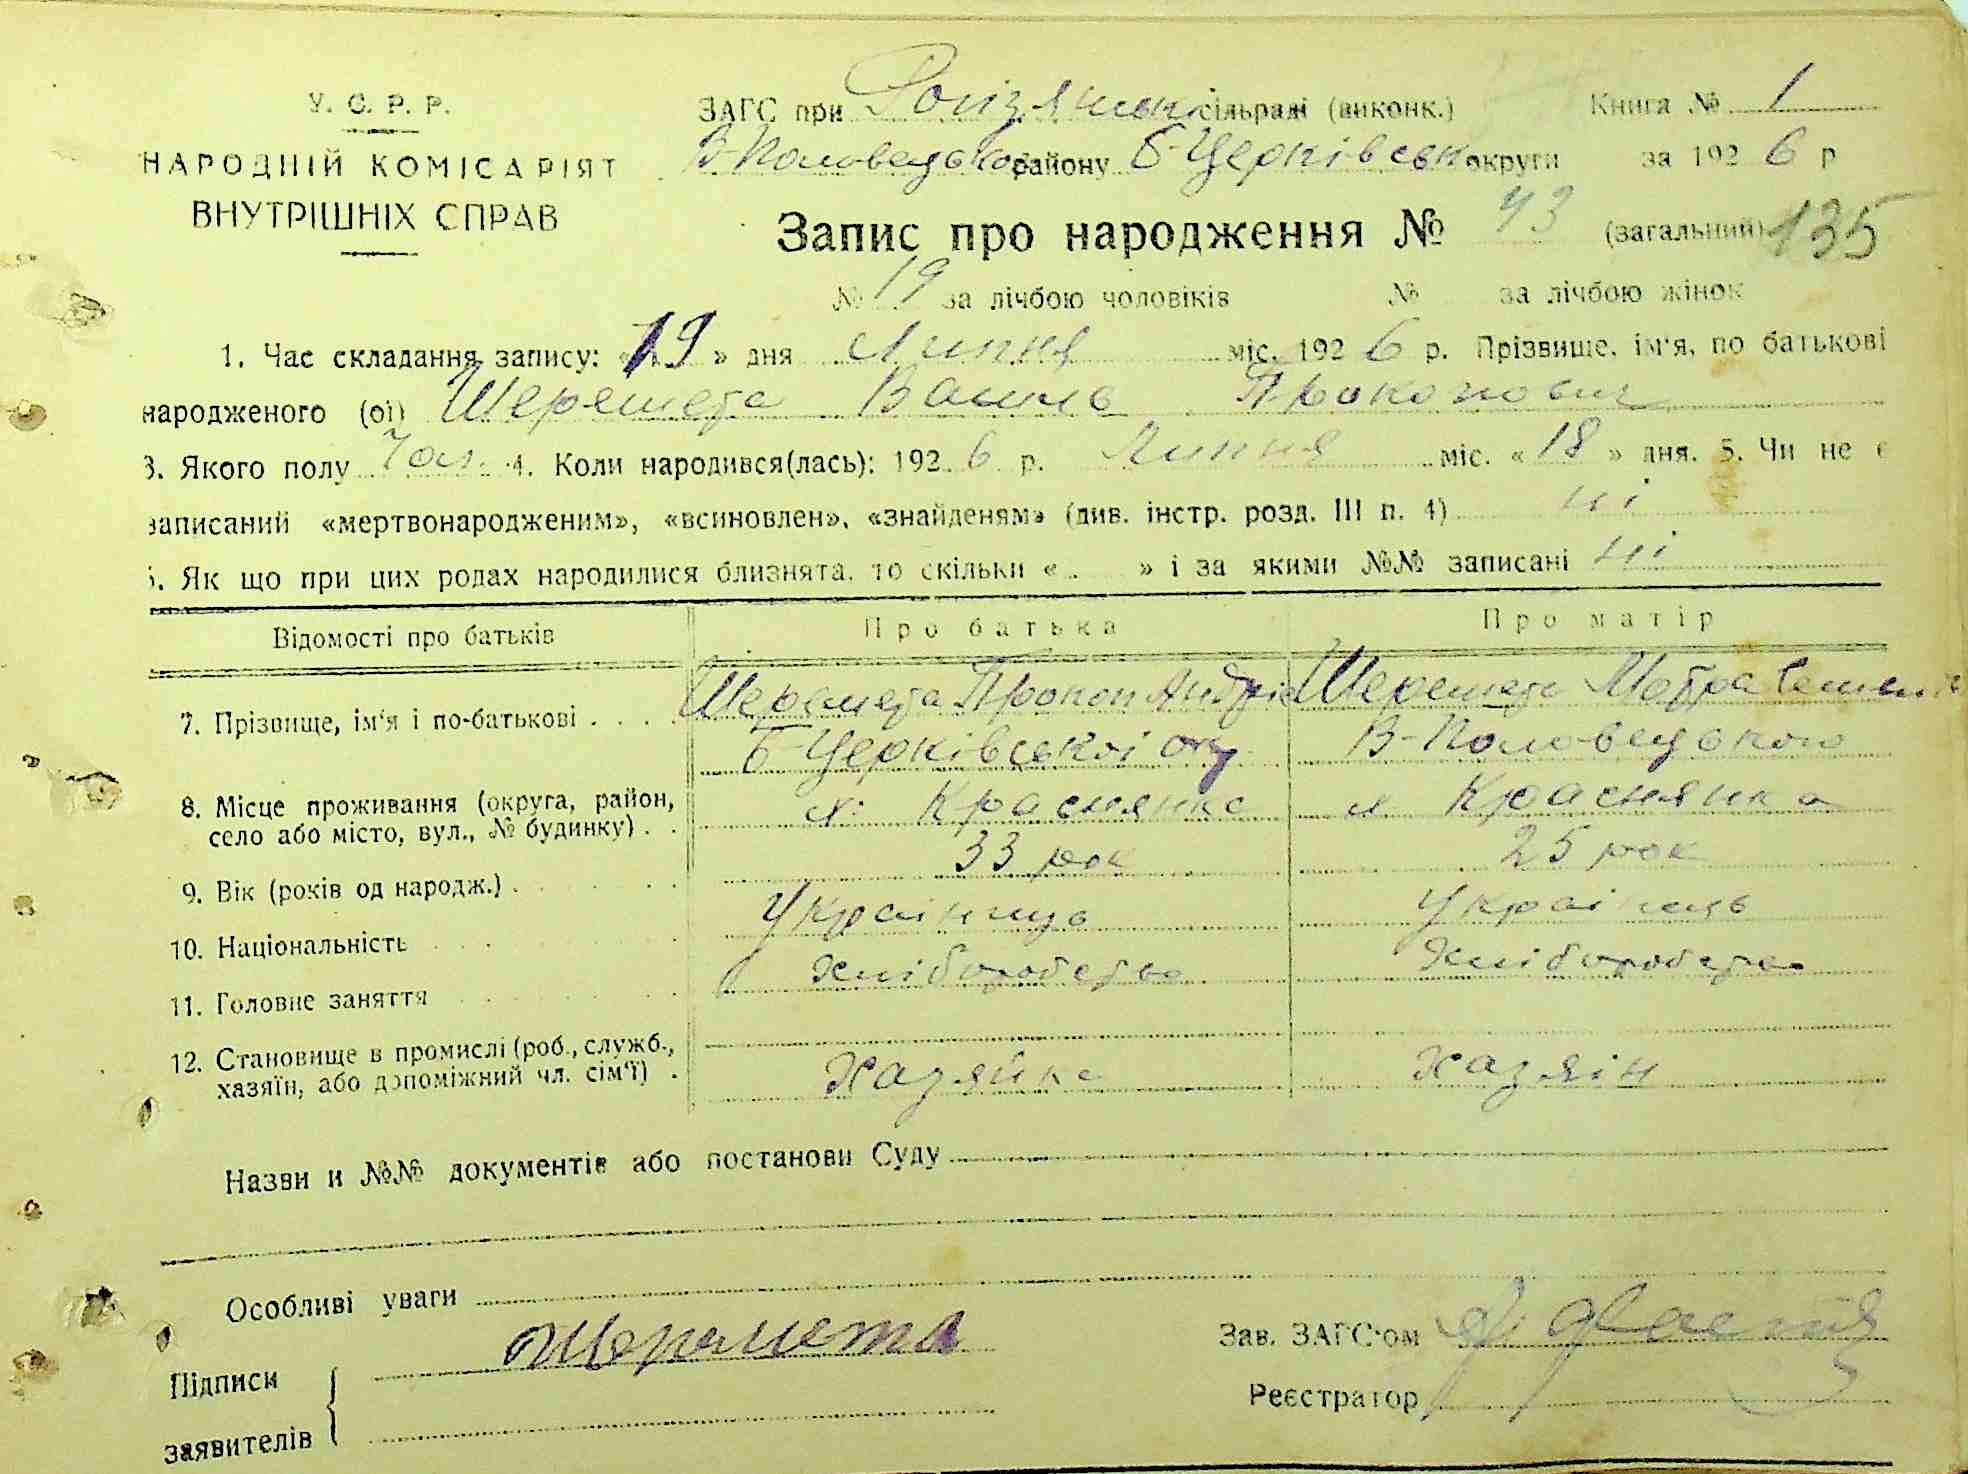 У. С. Р. Р.
НАРОДНІЙ КОМІСАРІЯТ
ВНУТРІШНІХ СПРАВ
ЗАГС при сільраді (виконк.) Книга № 1
В-Половецького району Б-Церківськ округи за 1926 р
Запис про народження № 43 (загальний) 135
№ 19 за лічбою чоловіків № за лічбою жінок
1. Час складання запису: «19» дня Липня міс. 1926 р. Прізвище, ім'я, по батькові
народженого (ої) Шеремета Василь Прокопович
3. Якого полу Чол. 4. Коли народився(лась): 1926 р. Липня міс. «18» дня. 5. Чи не є
записаний «мертвонародженим», «всиновлен», «знайденям» (див. інстр. розд. III п. 4) ні
6. Як що при цих родах народилися близнята, то скільки « » і за якими №№ записані ні
Відомості про батьків Про батька Про матір
7. Прізвище, ім'я і по-батькові . . . . Шеремета Прокоп Андріє Шеремета Мотра Семенів
Б-Церківської окр. В-Половецького
8. Місце проживання (округа, район,
село або місто, вул., № будинку) . . с. Краснянка с Краснянка
9. Вік (років од народж.) . 33 рок 25 рок
10. Національність Українць Українець
11. Головне заняття Хліборобство Хліборобство
12. Становище в промислі (роб., служб.,
хазяїн, або допоміжний чл. сім'ї) . Хазяйка хазяїн
Назви и №№ документів або постанови Суду
Особливі уваги
Підписи
заявителів
Шеремета
Зав. ЗАГС'ом
Реєстратор